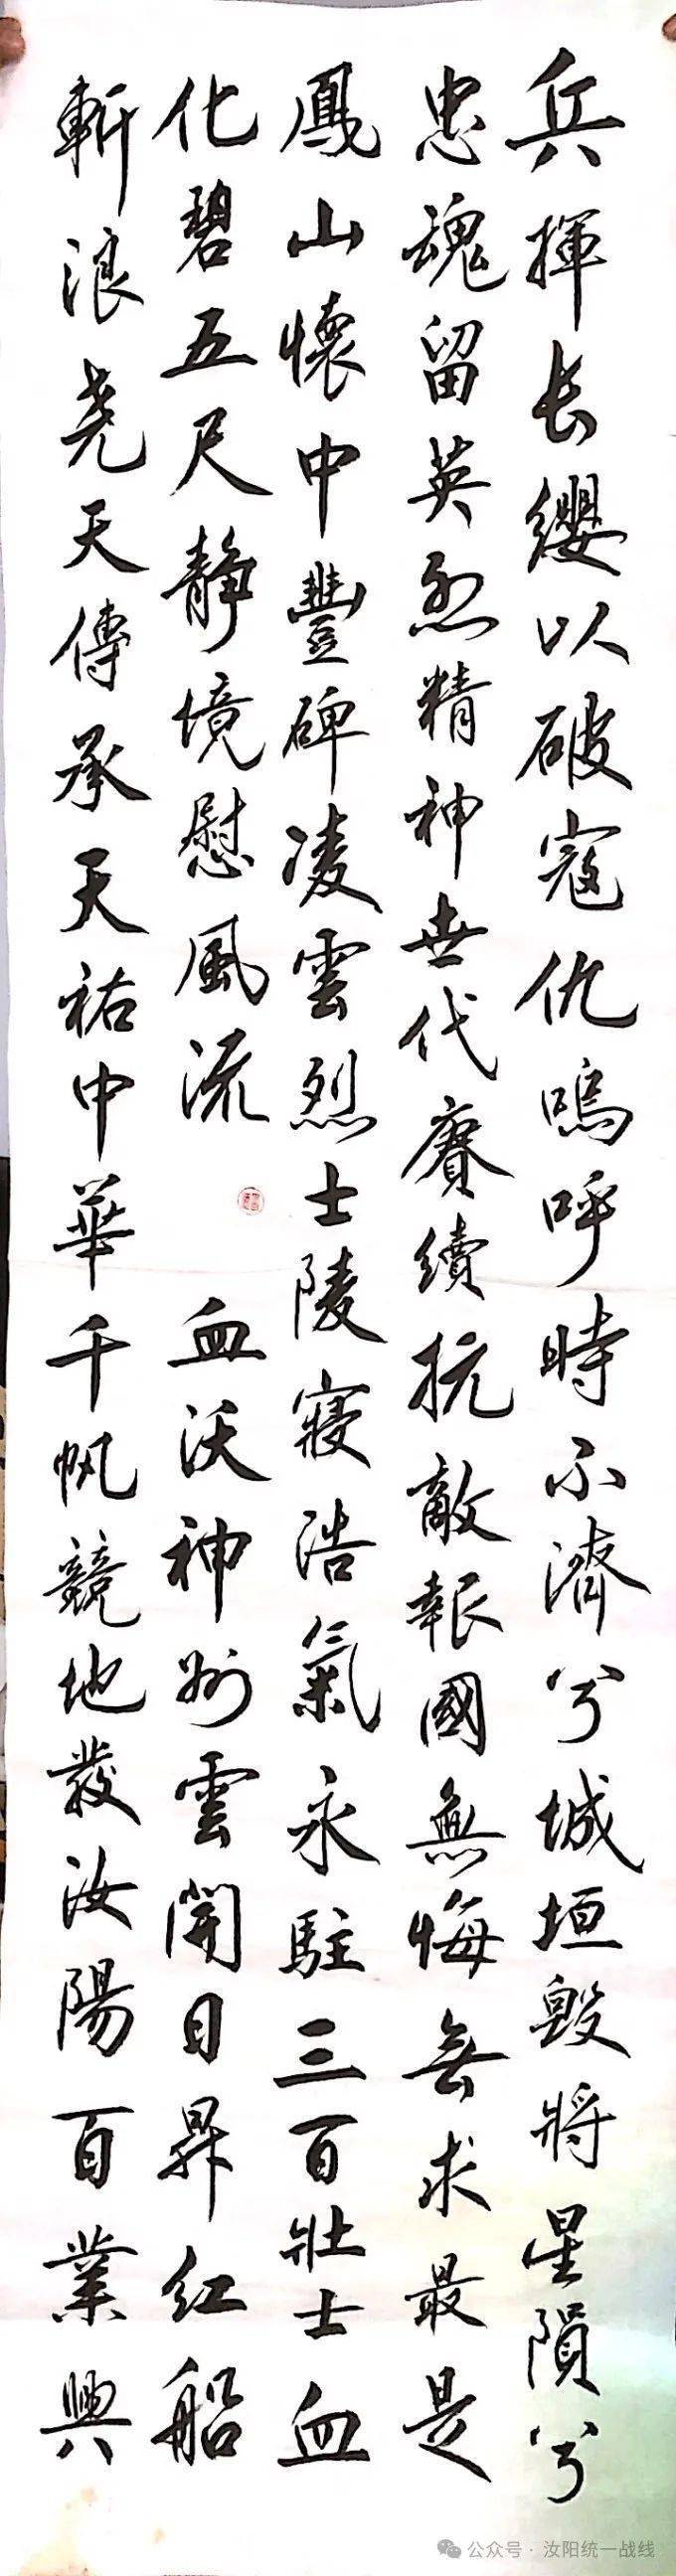 兵揮长纓以破寇仇嗚呼時不濟兮城垣毀將星隕兮
忠魂留英烈精神世代賡續抗敵報國無悔無求最是
鳳山懷中豐碑凌雲烈士陵寢浩氣永駐三百壯士血
化碧五尺静境慰風流 血沃神州雲開日昇红船
斬浪尧天傳承天祐中華千帆競地發汝陽百業興
公众号·汝阳统一战线